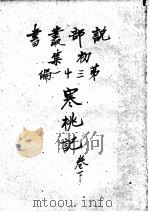 説部叢書
初集
第三十一編
寒桃記
卷下